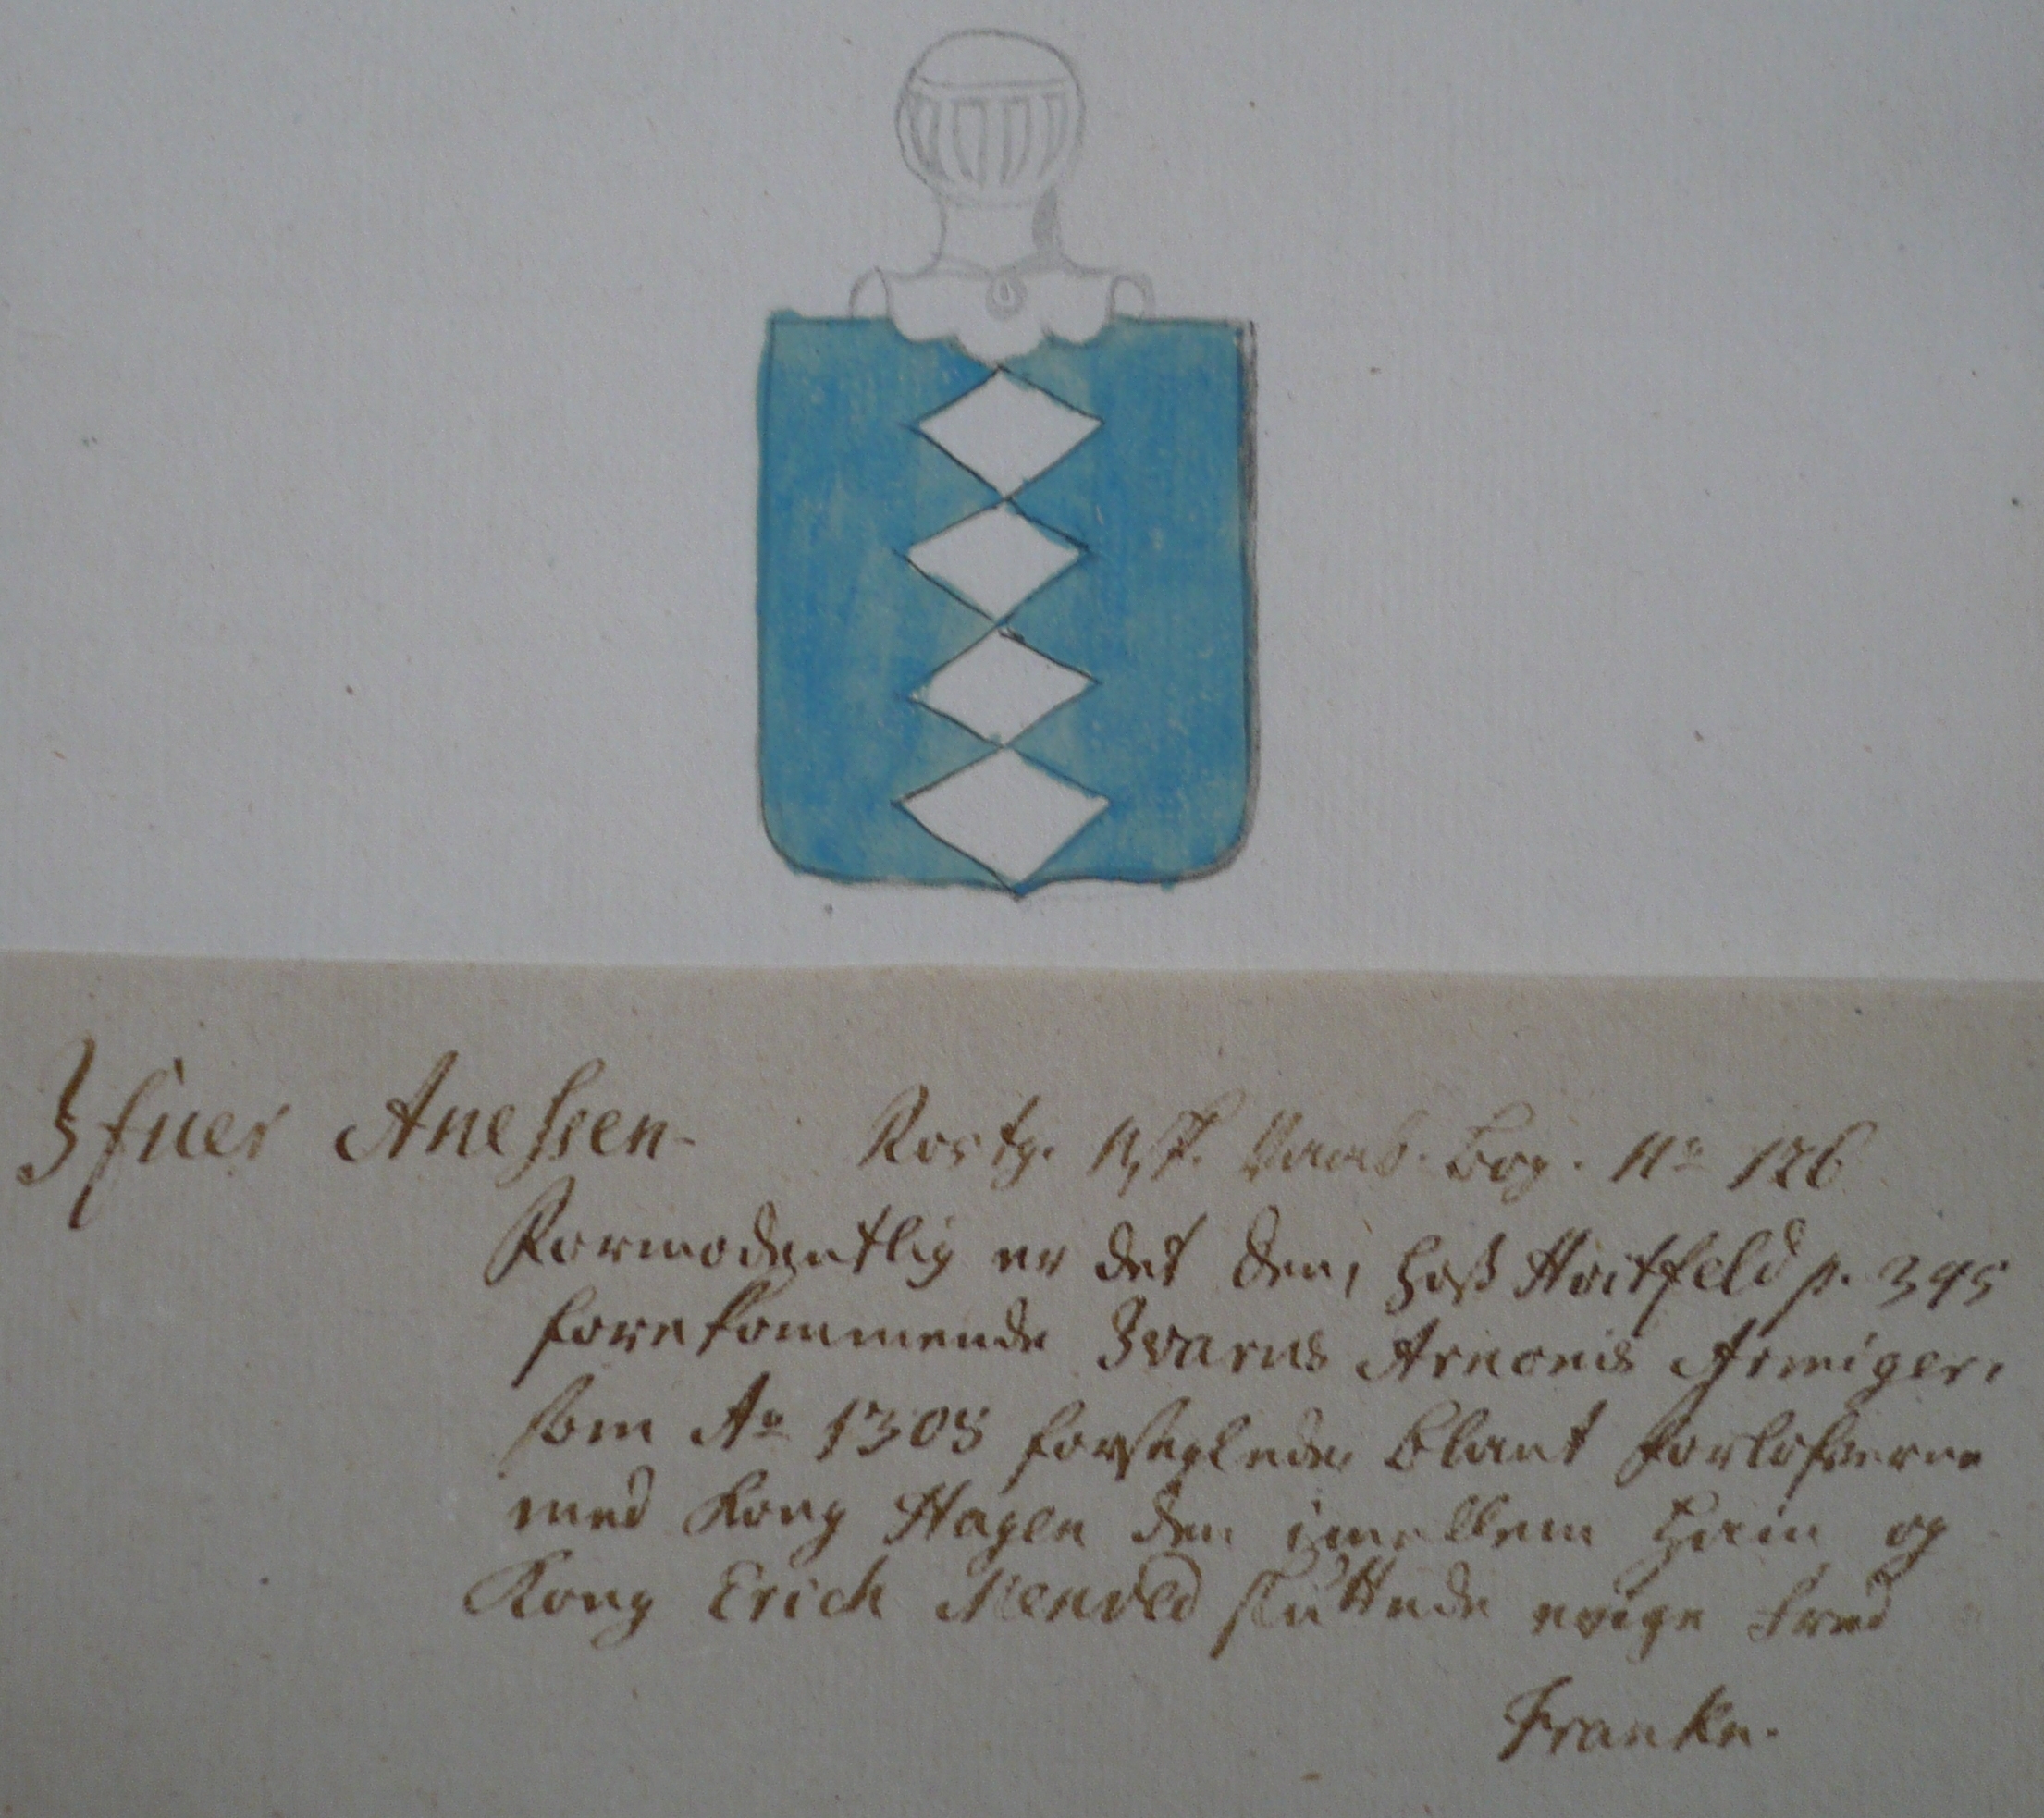 Ifuer Anessen Rostg. Msf. Vaab. Bog. No 126
Formodentlig er det den, hoss Hvitfeld p. 395
forekommende Ivarus Arneonis Armiger,
som Ao 1308 forseglede blant Forlofverne
med Kong Hagen den imellem Ham og
Kong Erich Menved sluttede evige Fred
Franke.